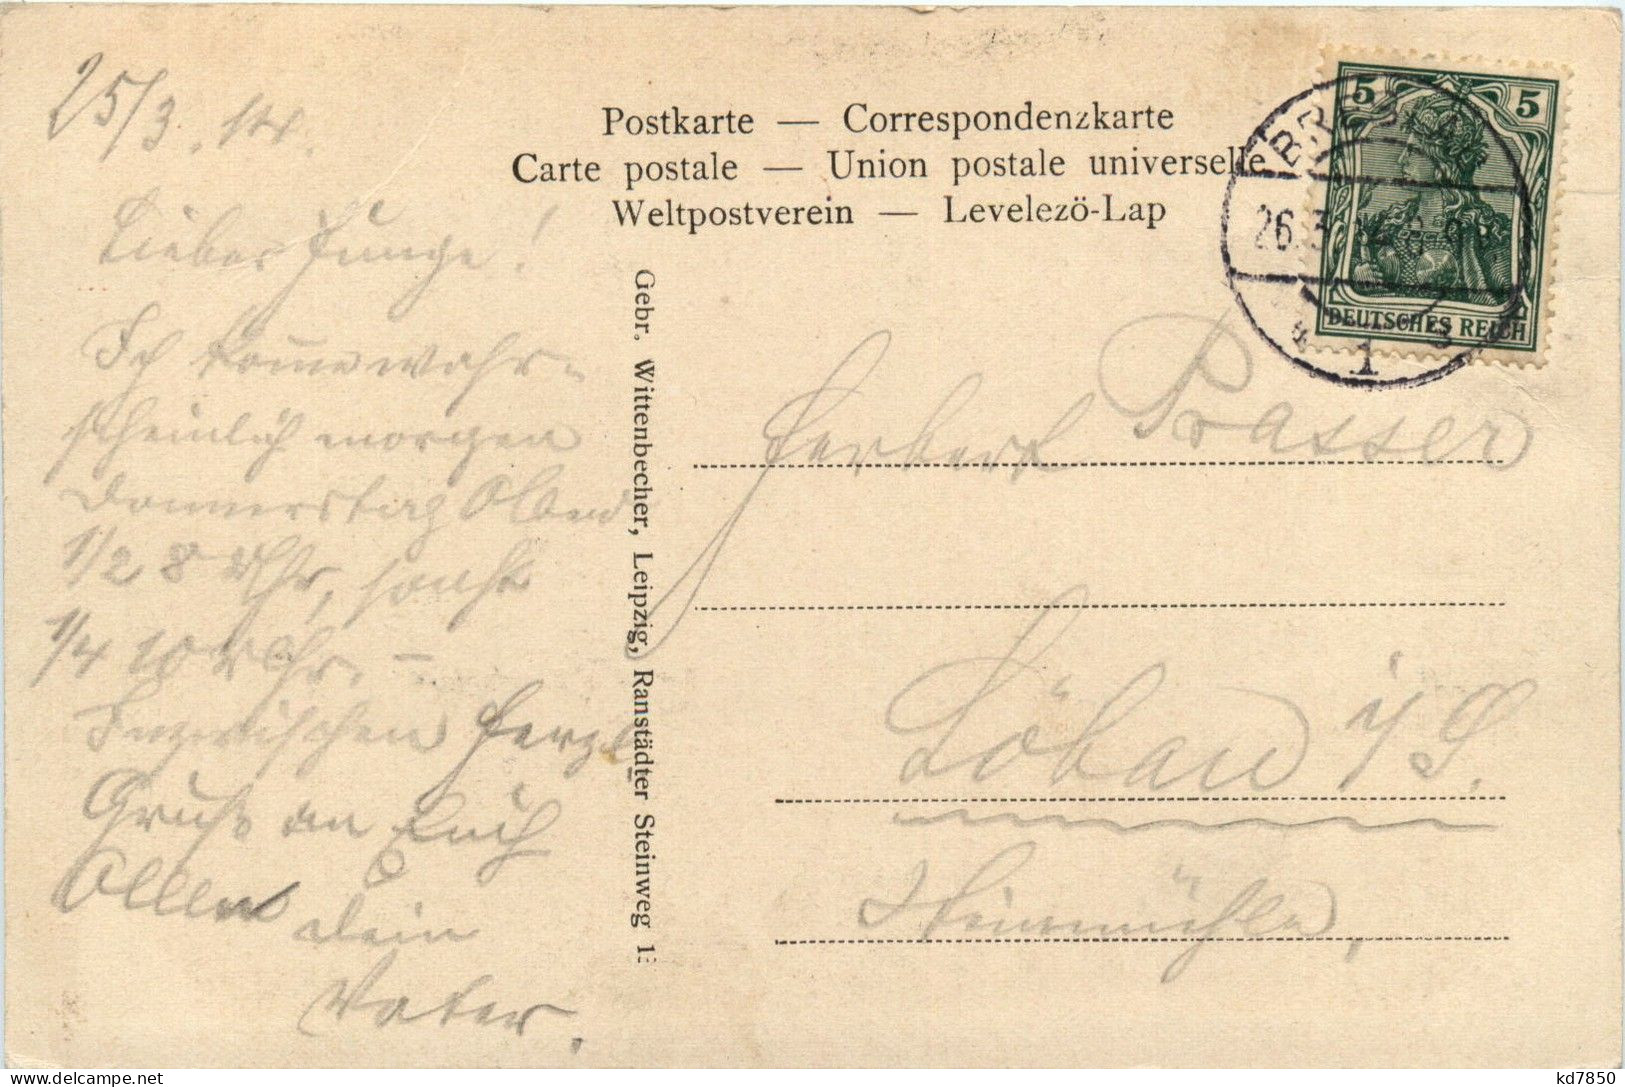 25/3. 14.
Lieber Junge!
Ich komme wahr-
scheinlich morgen
Donnerstag Abend
1/2 8 Uhr, sonst
1/4 10 Uhr. –
Inzwischen herzl
Gruß an Euch
Allen Dein
Vater.
Postkarte — Correspondenzkarte
Carte postale — Union postale universelle
Weltpostverein — Levelezö-Lap
Gebr. Wittenbecher, Leipzig, Ranstädter Steinweg 1
5 5
DEUTSCHES REICH
26.3
1
Herbert Prasser
Löbau i/S.
Steinmühle,
kd7850